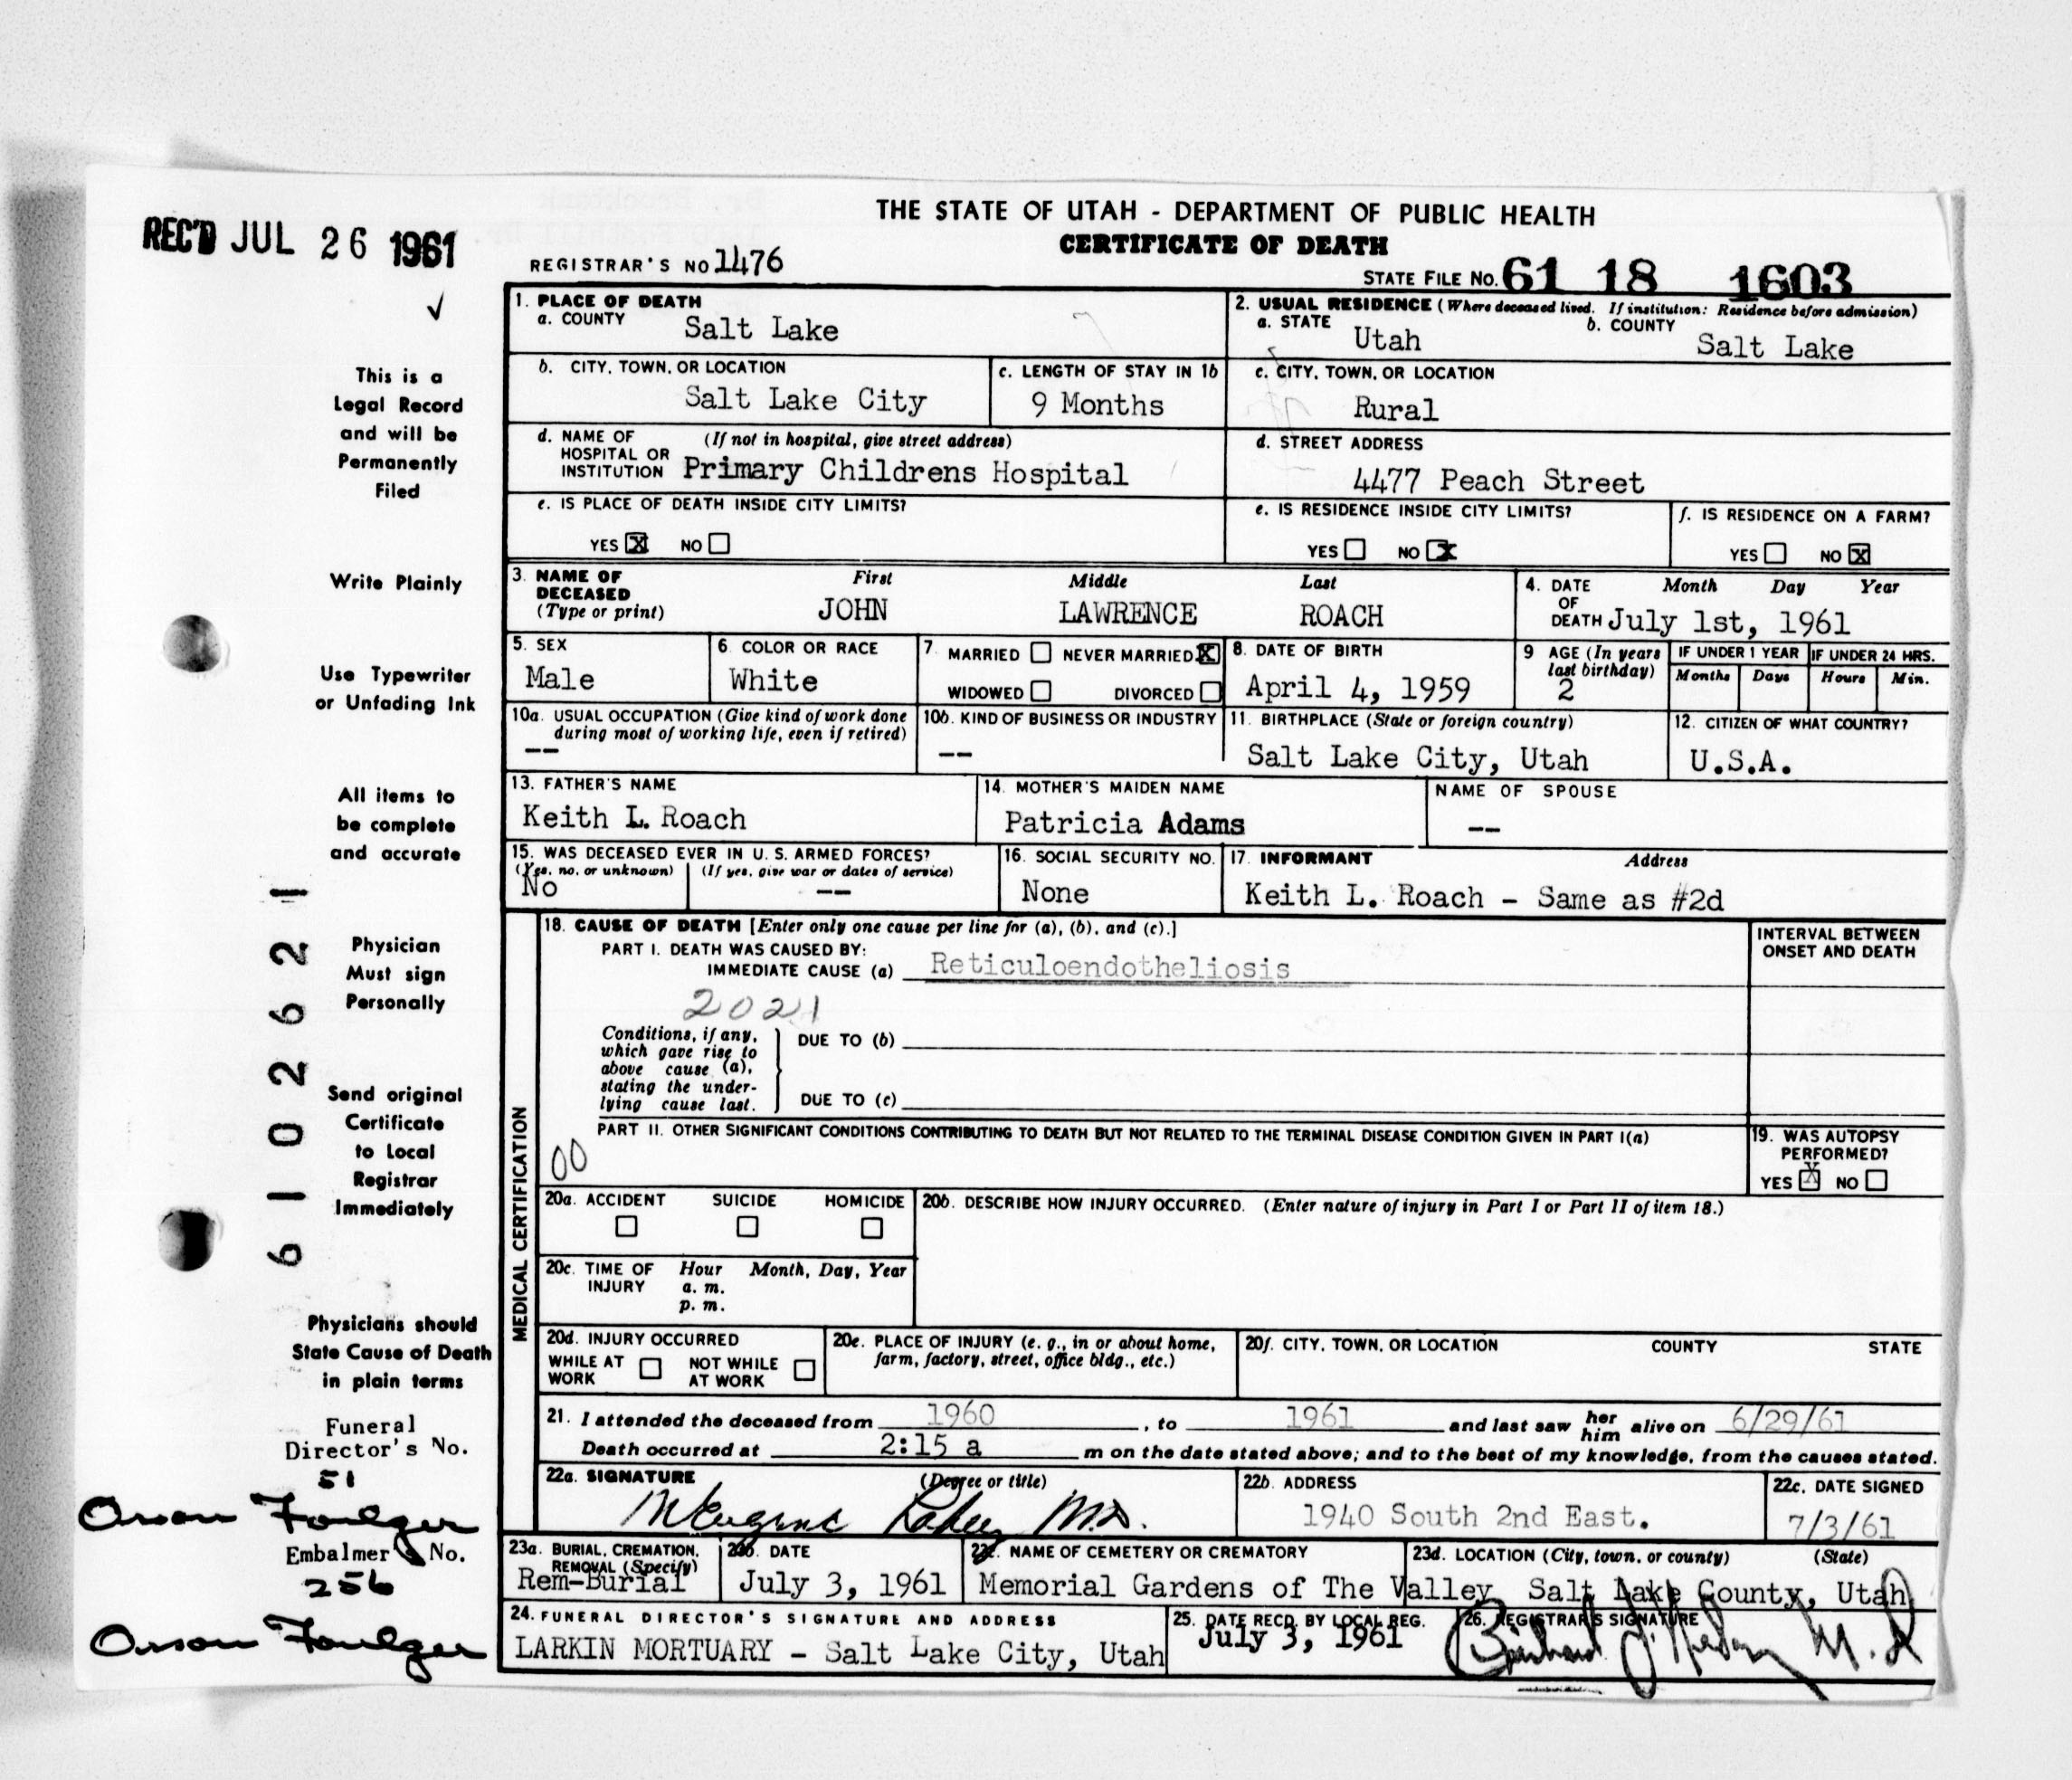 THE STATE OF UTAH - DEPARTMENT OF PUBLIC HEALTH
CERTIFICATE OF DEATH
REC'D JUL 26 1961
REGISTRAR'S NO 1476
STATE FILE NO. 61 18 1603
This is a
Legal Record
and will be
Permanently
Filed
Write Plainly
Use Typewriter
or Unfading Ink
All items to
be complete
and accurate
Physician
Must sign
Personally
Send original
Certificate
to Local
Registrar
Immediately
Physicians should
State Cause of Death
in plain terms
Funeral
Director's No.
51
Orson Foulger
Embalmer's No.
256
Orson Foulger
6102621
1. PLACE OF DEATH
a. COUNTY Salt Lake
2. USUAL RESIDENCE (Where deceased lived. If institution: Residence before admission)
a. STATE Utah b. COUNTY Salt Lake
b. CITY, TOWN, OR LOCATION Salt Lake City
c. LENGTH OF STAY IN 1b 9 Months
c. CITY, TOWN, OR LOCATION Rural
d. NAME OF HOSPITAL OR INSTITUTION (If not in hospital, give street address) Primary Childrens Hospital
d. STREET ADDRESS 4477 Peach Street
e. IS PLACE OF DEATH INSIDE CITY LIMITS?
YES X NO
e. IS RESIDENCE INSIDE CITY LIMITS?
YES NO X
f. IS RESIDENCE ON A FARM?
YES NO X
3. NAME OF DECEASED (Type or print)
First Middle Last
JOHN LAWRENCE ROACH
4. DATE OF DEATH Month Day Year
July 1st, 1961
5. SEX Male
6. COLOR OR RACE White
7. MARRIED NEVER MARRIED X
WIDOWED DIVORCED
8. DATE OF BIRTH April 4, 1959
9 AGE (In years last birthday) 2
IF UNDER 1 YEAR Months Days
IF UNDER 24 HRS. Hours Min.
10a. USUAL OCCUPATION (Give kind of work done during most of working life, even if retired) --
10b. KIND OF BUSINESS OR INDUSTRY --
11. BIRTHPLACE (State or foreign country) Salt Lake City, Utah
12. CITIZEN OF WHAT COUNTRY? U.S.A.
13. FATHER'S NAME Keith L. Roach
14. MOTHER'S MAIDEN NAME Patricia Adams
NAME OF SPOUSE --
15. WAS DECEASED EVER IN U. S. ARMED FORCES?
(Yes, no, or unknown) No (If yes, give war or dates of service) --
16. SOCIAL SECURITY NO. None
17. INFORMANT Address
Keith L. Roach - Same as #2d
MEDICAL CERTIFICATION
18. CAUSE OF DEATH [Enter only one cause per line for (a), (b), and (c).]
INTERVAL BETWEEN ONSET AND DEATH
PART I. DEATH WAS CAUSED BY:
IMMEDIATE CAUSE (a) Reticuloendotheliosis
2021
Conditions, if any, which gave rise to above cause (a), stating the underlying cause last.
DUE TO (b)
DUE TO (c)
PART II. OTHER SIGNIFICANT CONDITIONS CONTRIBUTING TO DEATH BUT NOT RELATED TO THE TERMINAL DISEASE CONDITION GIVEN IN PART I(a)
00
19. WAS AUTOPSY PERFORMED?
YES X NO
20a. ACCIDENT SUICIDE HOMICIDE
20b. DESCRIBE HOW INJURY OCCURRED. (Enter nature of injury in Part I or Part II of item 18.)
20c. TIME OF INJURY Hour Month, Day, Year
a. m.
p. m.
20d. INJURY OCCURRED
WHILE AT WORK NOT WHILE AT WORK
20e. PLACE OF INJURY (e. g., in or about home, farm, factory, street, office bldg., etc.)
20f. CITY, TOWN, OR LOCATION COUNTY STATE
21. I attended the deceased from 1960, to 1961 and last saw her him alive on 6/29/61
Death occurred at 2:15 a m on the date stated above; and to the best of my knowledge, from the causes stated.
22a. SIGNATURE (Degree or title)
Eugene Lahey M.D.
22b. ADDRESS 1940 South 2nd East.
22c. DATE SIGNED 7/3/61
23a. BURIAL, CREMATION, REMOVAL (Specify) Rem-Burial
23b. DATE July 3, 1961
23c. NAME OF CEMETERY OR CREMATORY Memorial Gardens of The Valley
23d. LOCATION (City, town, or county) (State) Salt Lake County, Utah
24. FUNERAL DIRECTOR'S SIGNATURE AND ADDRESS
LARKIN MORTUARY - Salt Lake City, Utah
25. DATE RECD. BY LOCAL REG. July 3, 1961
26. REGISTRAR'S SIGNATURE
M.D